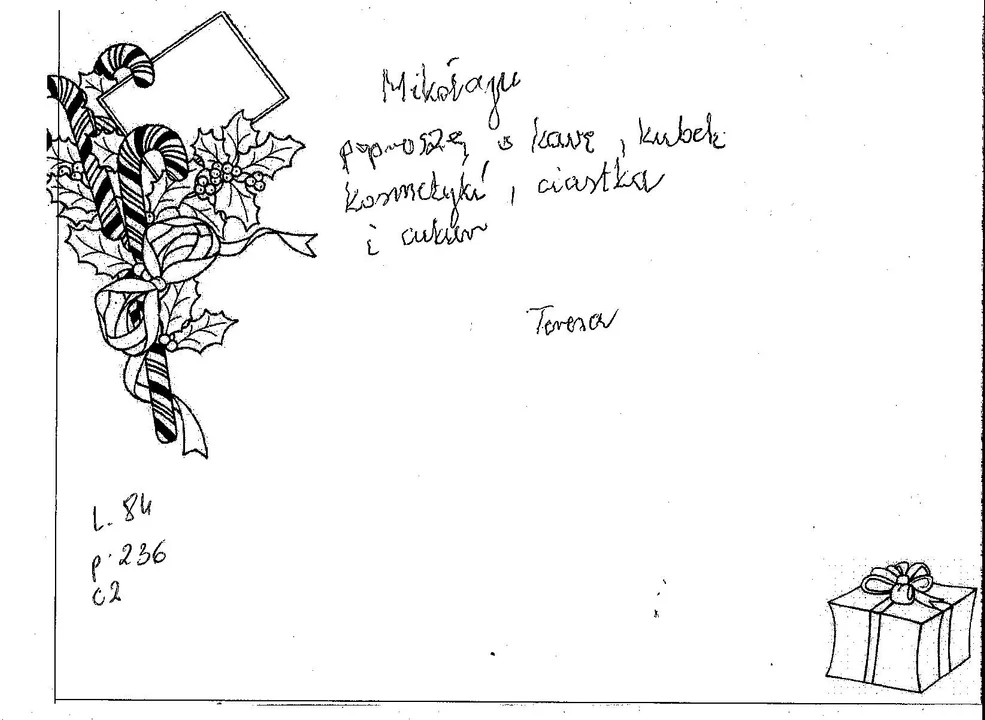 Mikołaju
poproszę o kawę, kubek
kosmetyki, ciastka
i cukier
Teresa
L. 84
p. 236
C2